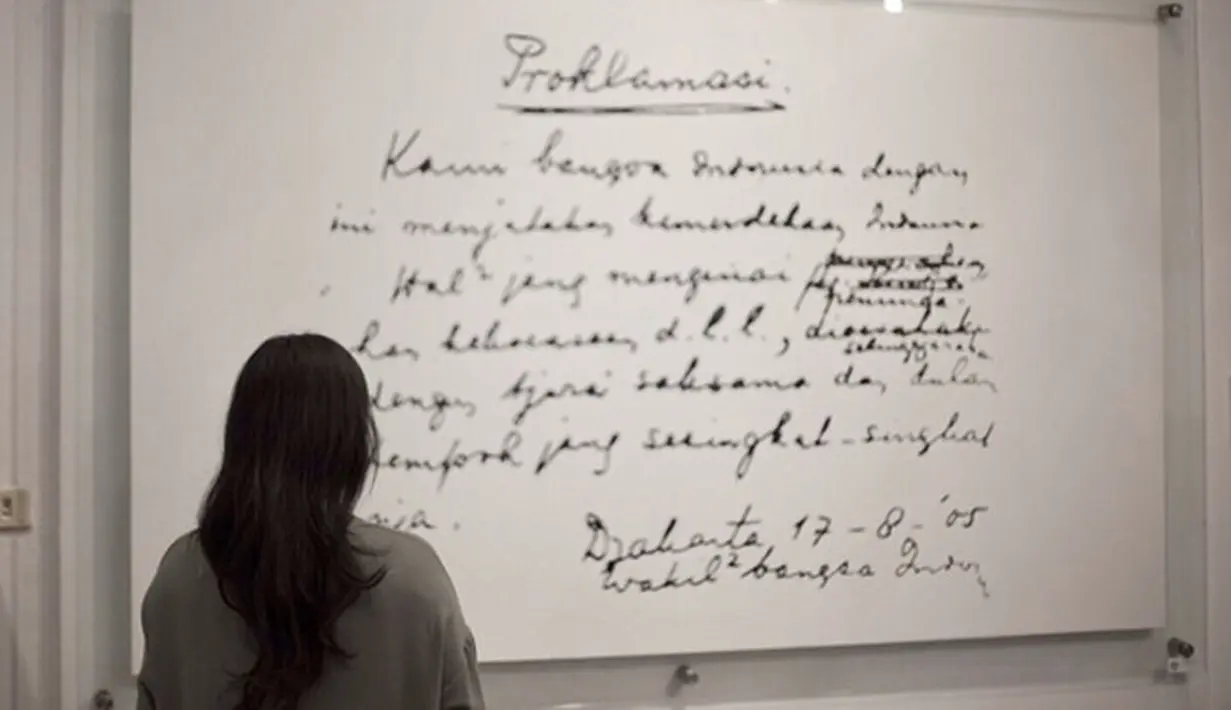 Proklamasi.
Kami bangsa Indonesia dengan
ini menjatakan kemerdekaan Indonesia
Hal² jang mengenai
peminda-
han kekoeasaan d.l.l., dioesahakan
dengan tjara saksama dan dalam
tempoh jang sesingkat-singkat
nja.
Djakarta 17-8-'05
Wakil² bangsa Indon